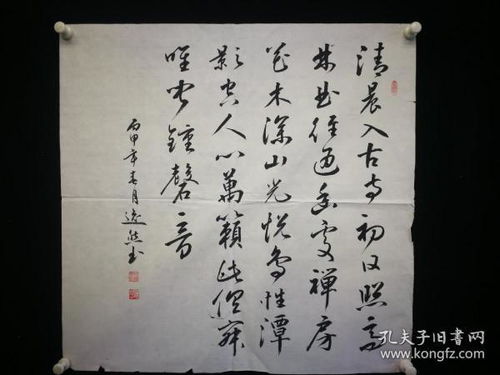 清晨入古寺初日照高
林曲徑通幽處禪房
花木深山光悅鳥性潭
影空人心萬籟此俱寂
唯聞鐘磬音
丙申年春月逸然书
孔夫子旧书网
www.kongfz.com